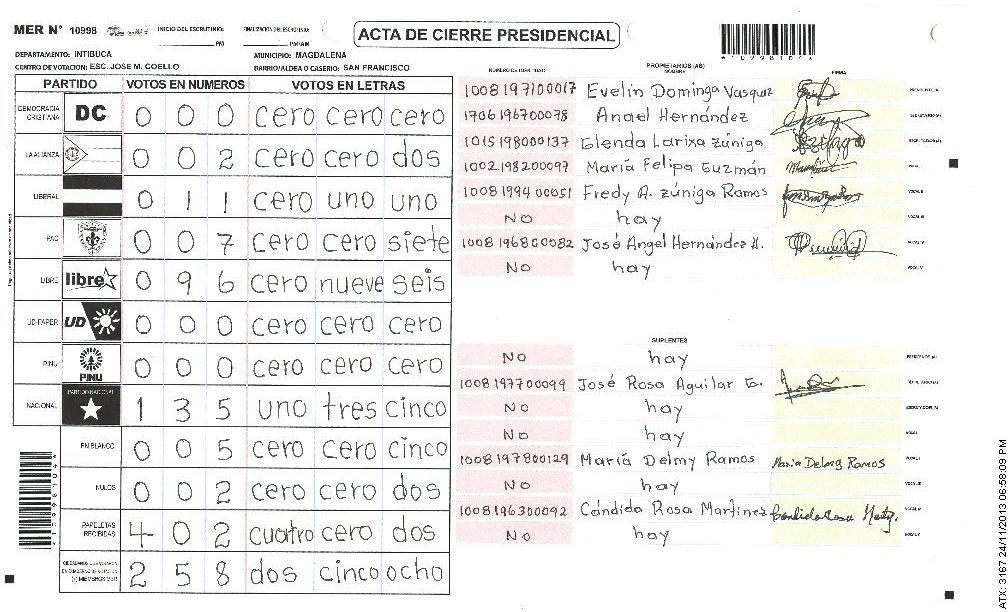 MER N° 10998
INICIO DEL ESCRUTINIO: PM
FINALIZACION DEL ESCRUTINIO: PM/AM
ACTA DE CIERRE PRESIDENCIAL
*10998104*
DEPARTAMENTO: INTIBUCA
MUNICIPIO: MAGDALENA
CENTRO DE VOTACION: ESC. JOSE M. COELLO
BARRIO/ALDEA O CASERIO: SAN FRANCISCO
PARTIDO VOTOS EN NUMEROS VOTOS EN LETRAS
DEMOCRACIA CRISTIANA DC 0 0 0 cero cero cero
LA ALIANZA 0 0 2 cero cero dos
LIBERAL 0 1 1 cero uno uno
PAC 0 0 7 cero cero siete
LIBRE libre 0 9 6 cero nueve seis
UD-FAPER UD 0 0 0 cero cero cero
PINU PINU 0 0 0 cero cero cero
NACIONAL PARTIDO NACIONAL 1 3 5 uno tres cinco
EN BLANCO 0 0 5 cero cero cinco
NULOS 0 0 2 cero cero dos
PAPELETAS RECIBIDAS 4 0 2 cuatro cero dos
CIUDADANOS QUE VOTARON EN CUADERNO DE VOTACION (+) MIEMBROS MER 2 5 8 dos cinco ocho
*10998104*
NUMERO DE IDENTIDAD PROPIETARIOS (AS) NOMBRE FIRMA
1008197100017 Evelin Dominga Vasquez PRESIDENTE (A)
1706196700078 Angel Hernández SECRETARIO (A)
1015198000137 Glenda Larixa Zúniga ESCRUTADOR (A)
1002198200097 María Felipa Guzmán VOCAL I
1008199400051 Fredy A. Zúniga Ramos VOCAL II
No hay VOCAL III
1008196800082 José Angel Hernández H. VOCAL IV
No hay VOCAL V
SUPLENTES
No hay PRESIDENTE (A)
1008197700099 José Rosa Aguilar G. SECRETARIO (A)
No hay ESCRUTADOR (A)
No hay VOCAL I
1008197800129 María Delmy Ramos Maria Delmy Ramos VOCAL II
No hay VOCAL III
1008196300092 Cándida Rosa Martinez Candida Rosa VOCAL IV
No hay VOCAL V
ATX: 3167 24/11/2013 06:58:09 PM